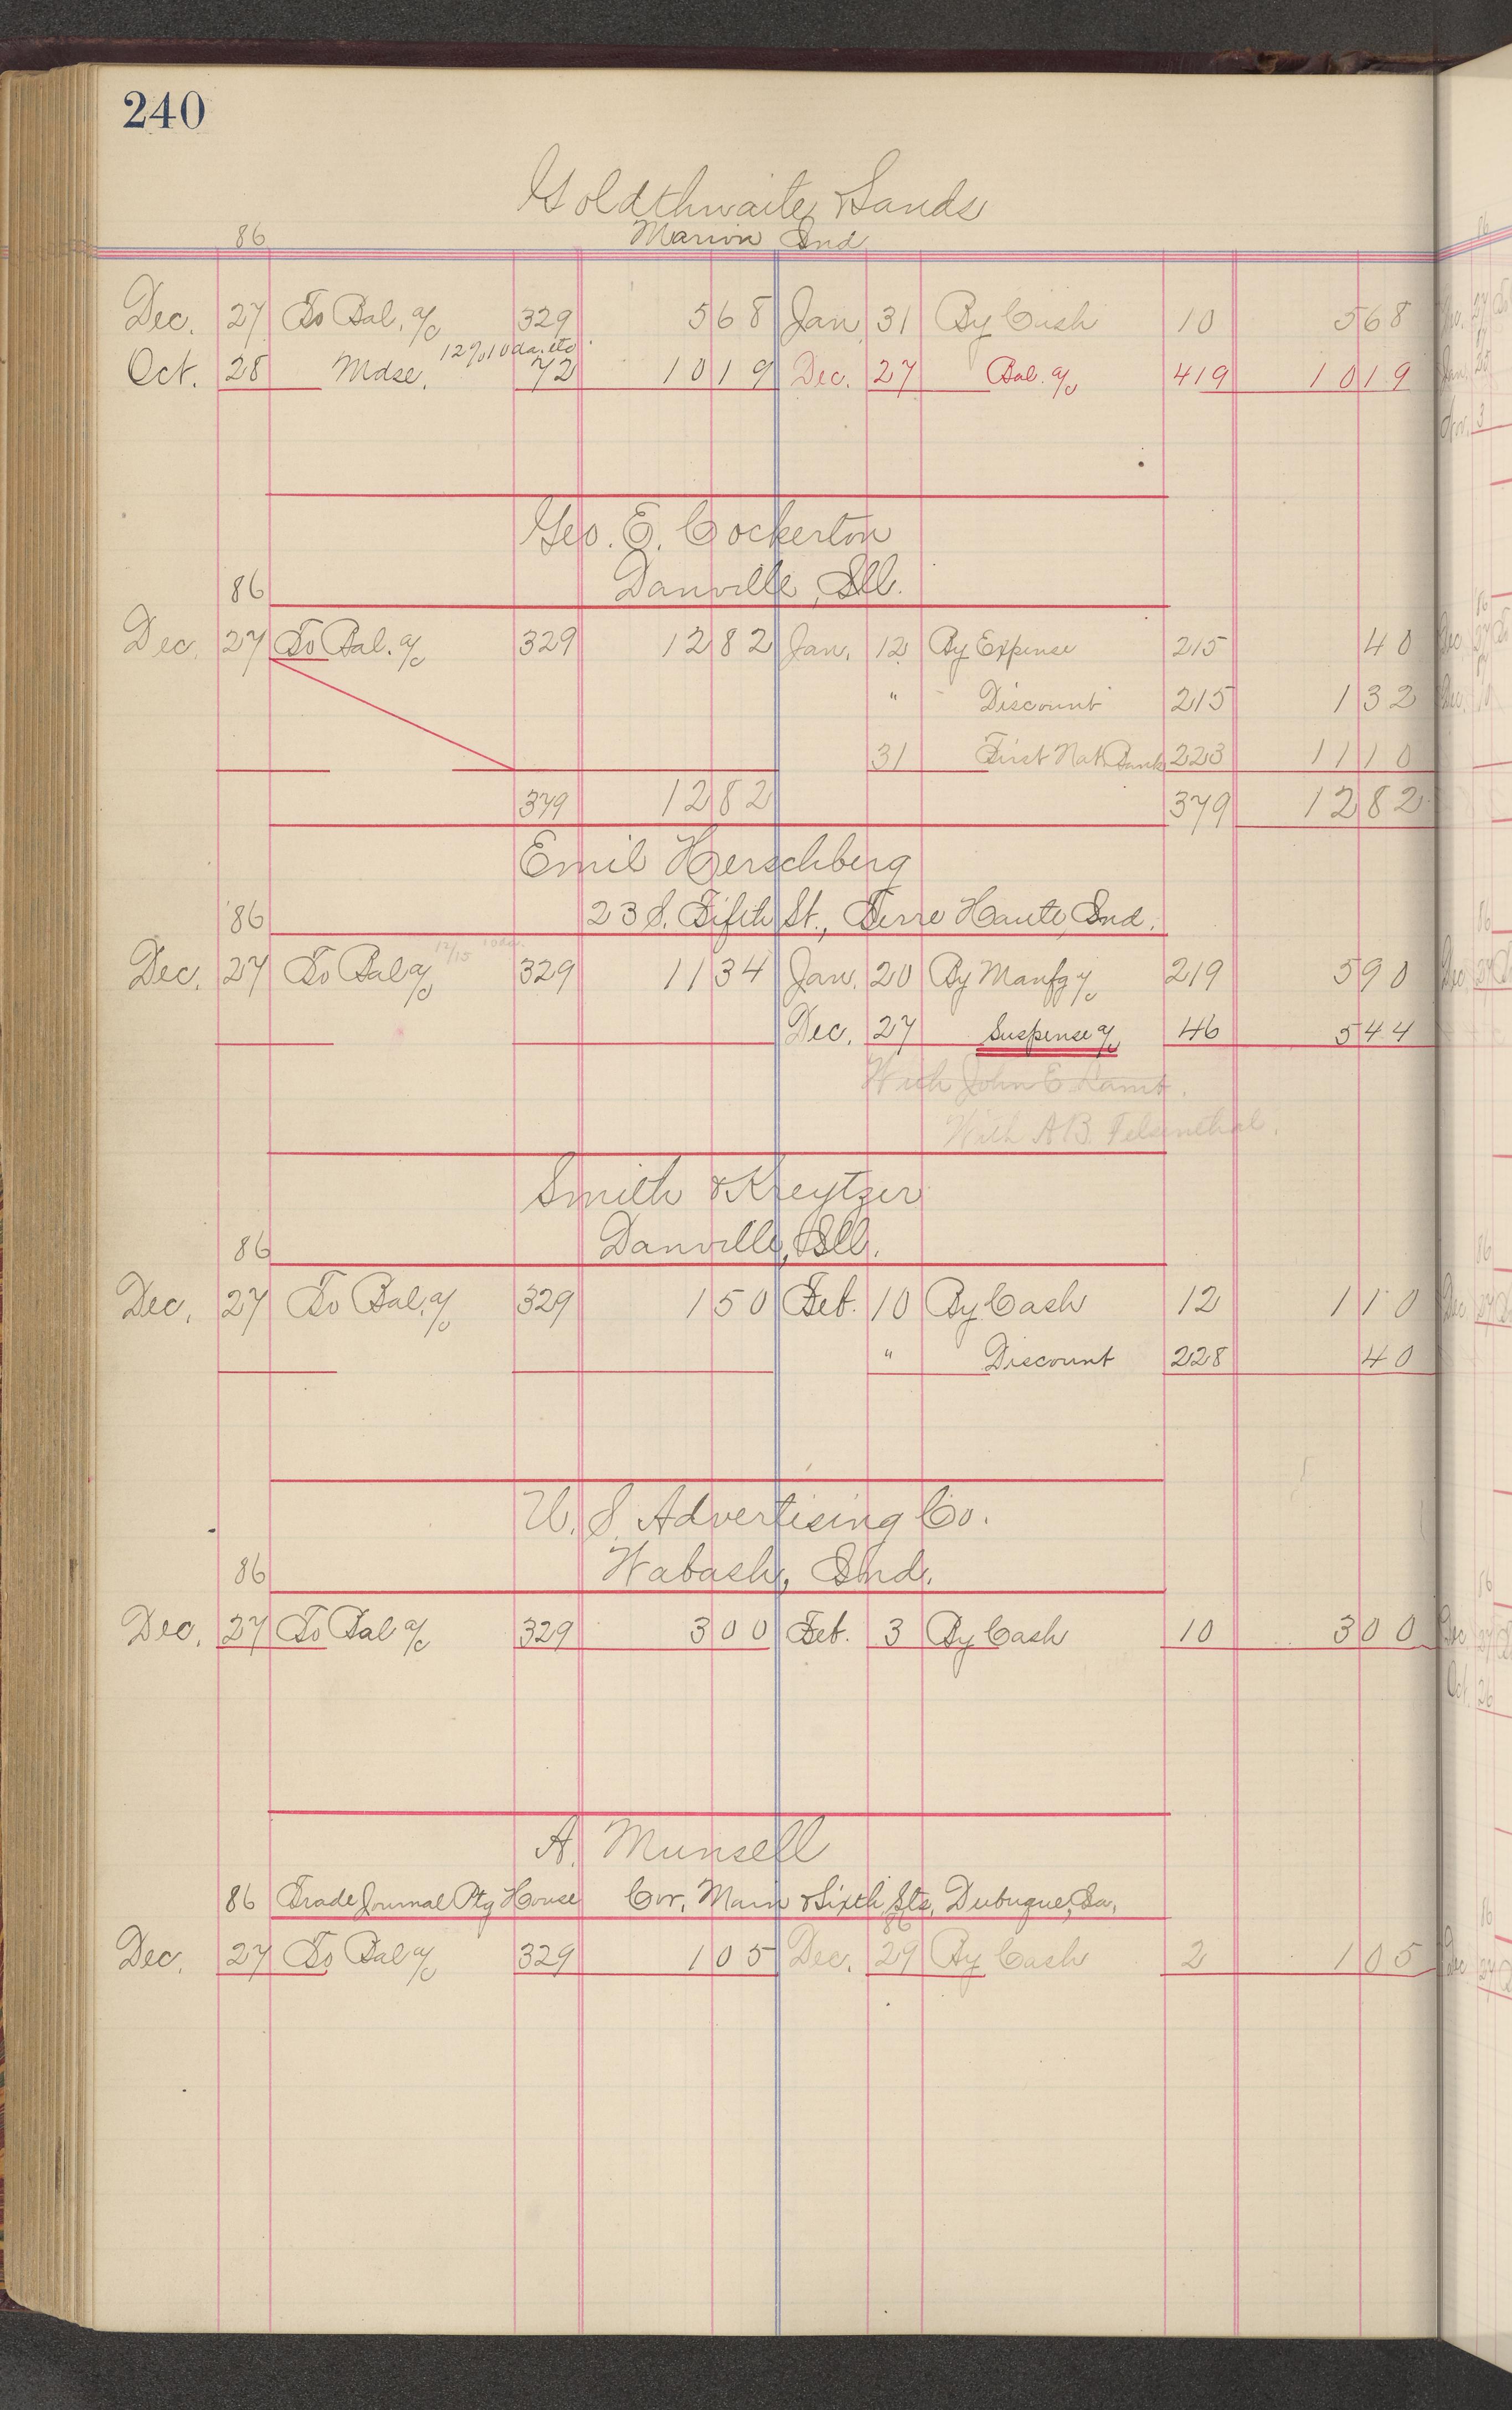 240
Goldthwaite & Sands
86 Marion Ind
Dec. 27 To Bal. a/c 329 5 68 Jan 31 By Cash 10 5 68
12 % 10 da. etc
Oct. 28 Mdse. 72 10 19 Dec. 27 Bal. a/c 419 10 19
Geo. E. Cockerton
86 Danville, Ill.
Dec. 27 To Bal. a/c 329 12 82 Jan. 12 By Expense 215 40
" Discount 215 1 32
31 First Nat Bank 223 11 10
379 12 82 379 12 82
Emil Herschberg
'86 23 S. Fifth St., Terre Haute, Ind.
12/15 10 da.
Dec. 27 To Bal a/c 329 11 34 Jan. 20 By Manfg a/c 219 5 90
Dec. 27 Suspense a/c 46 5 44
With John E Lamb.
With A B. Felsenthal.
Smith & Kreytzer
86 Danville, Ill.
Dec. 27 To Bal. a/c 329 1 50 Feb. 10 By Cash 12 1 10
" Discount 228 40
U. S. Advertising Co.
86 Wabash, Ind.
Dec. 27 To Bal a/c 329 3 00 Feb. 3 By Cash 10 3 00
A. Munsell
86 Trade Journal Ptg House Cor. Main & Sixth Sts. Dubuque, Ia.
86
Dec. 27 To Bal a/c 329 1 05 Dec. 29 By Cash 2 1 05